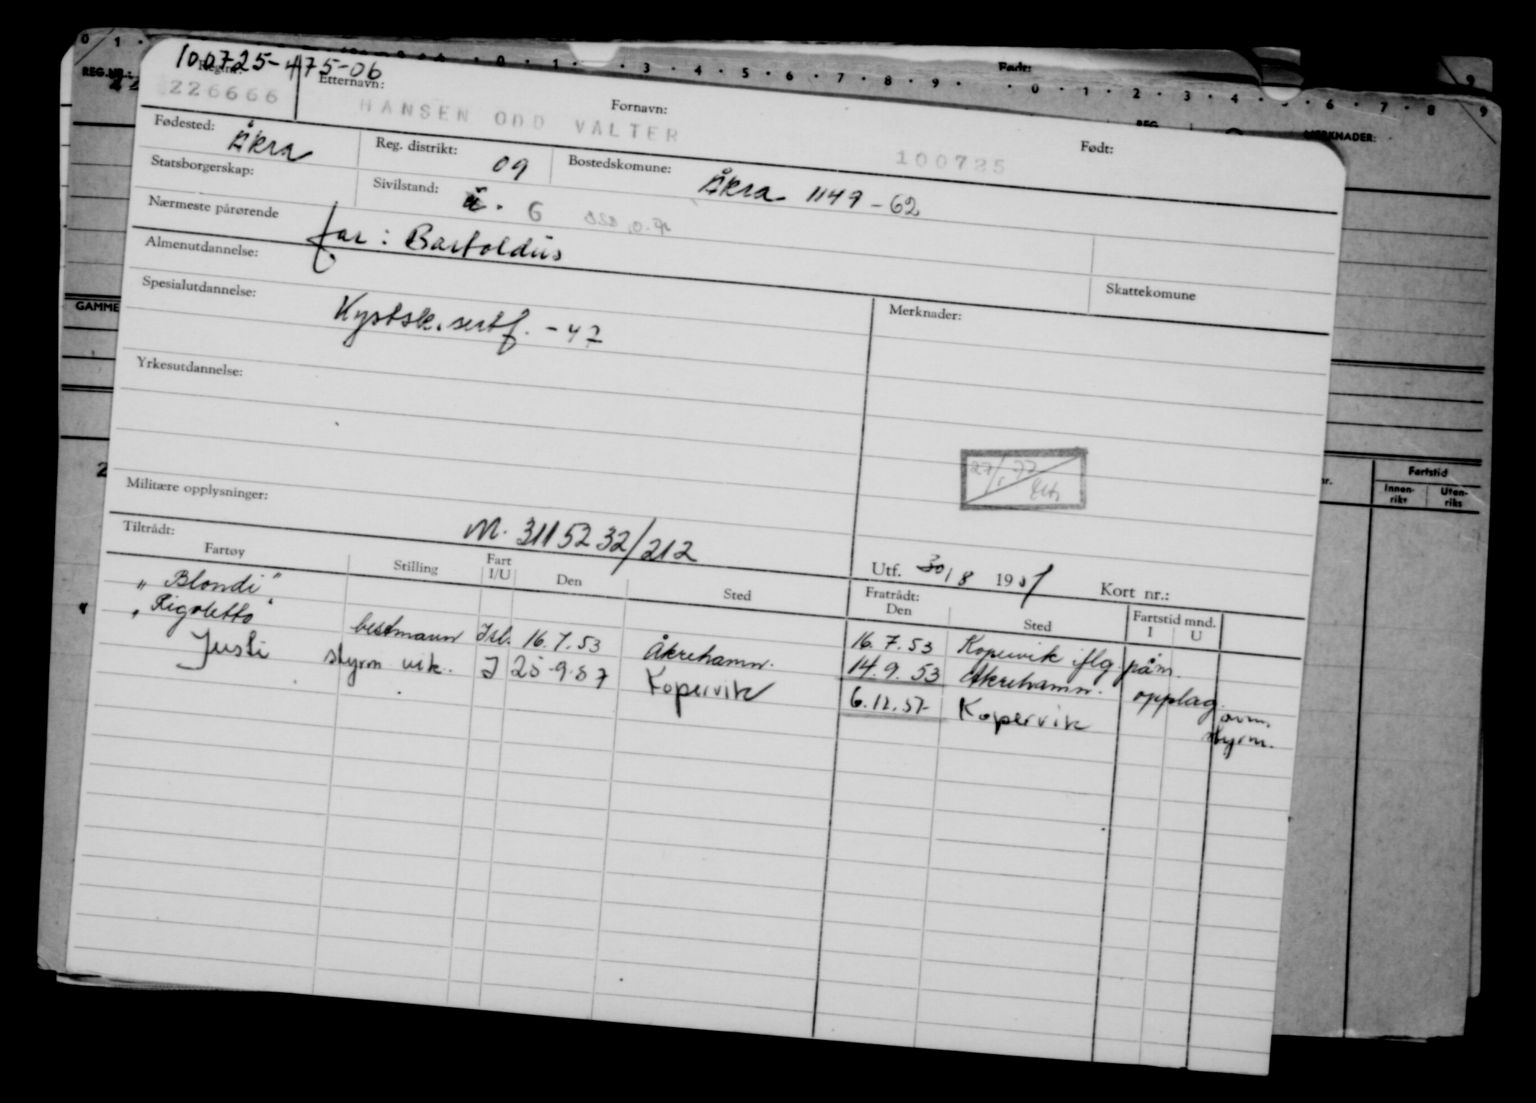 100725-475-06
Reg.nr.: Etternavn: Fornavn: Født:
226666 HANSEN ODD VALTER 100725
Fødested: Åkra Reg. distrikt: 09 Bostedskomune: Åkra 1149-62
Statsborgerskap: Sivilstand: G
Nærmeste pårørende far: Bartoldus
Skattekomune
Almenutdannelse:
Merknader:
Spesialutdannelse: Kystsk.sertf. -47
Yrkesutdannelse:
Militære opplysninger: M. 3115232/212
Utf. 30/8 195 Kort nr.:
Tiltrådt: Fratrådt: Fartstid mnd.
Fartøy Stilling Fart I/U Den Sted Den Sted I U
"Blondi" 16.7.53 Kopervik iflg. påm.
"Rigoletto" bestmann 16.7.53 Åkrehamn. 14.9.53 Åkrehamn. opplag.
Justi styrm vik. I 25-9-57 Kopervik 6.12.57 Kopervik avm. styrm.
REG.NR.:
GAMME
Født:
REG.
MERKNADER:
nr. Fartstid
Innen-riks Uten-riks